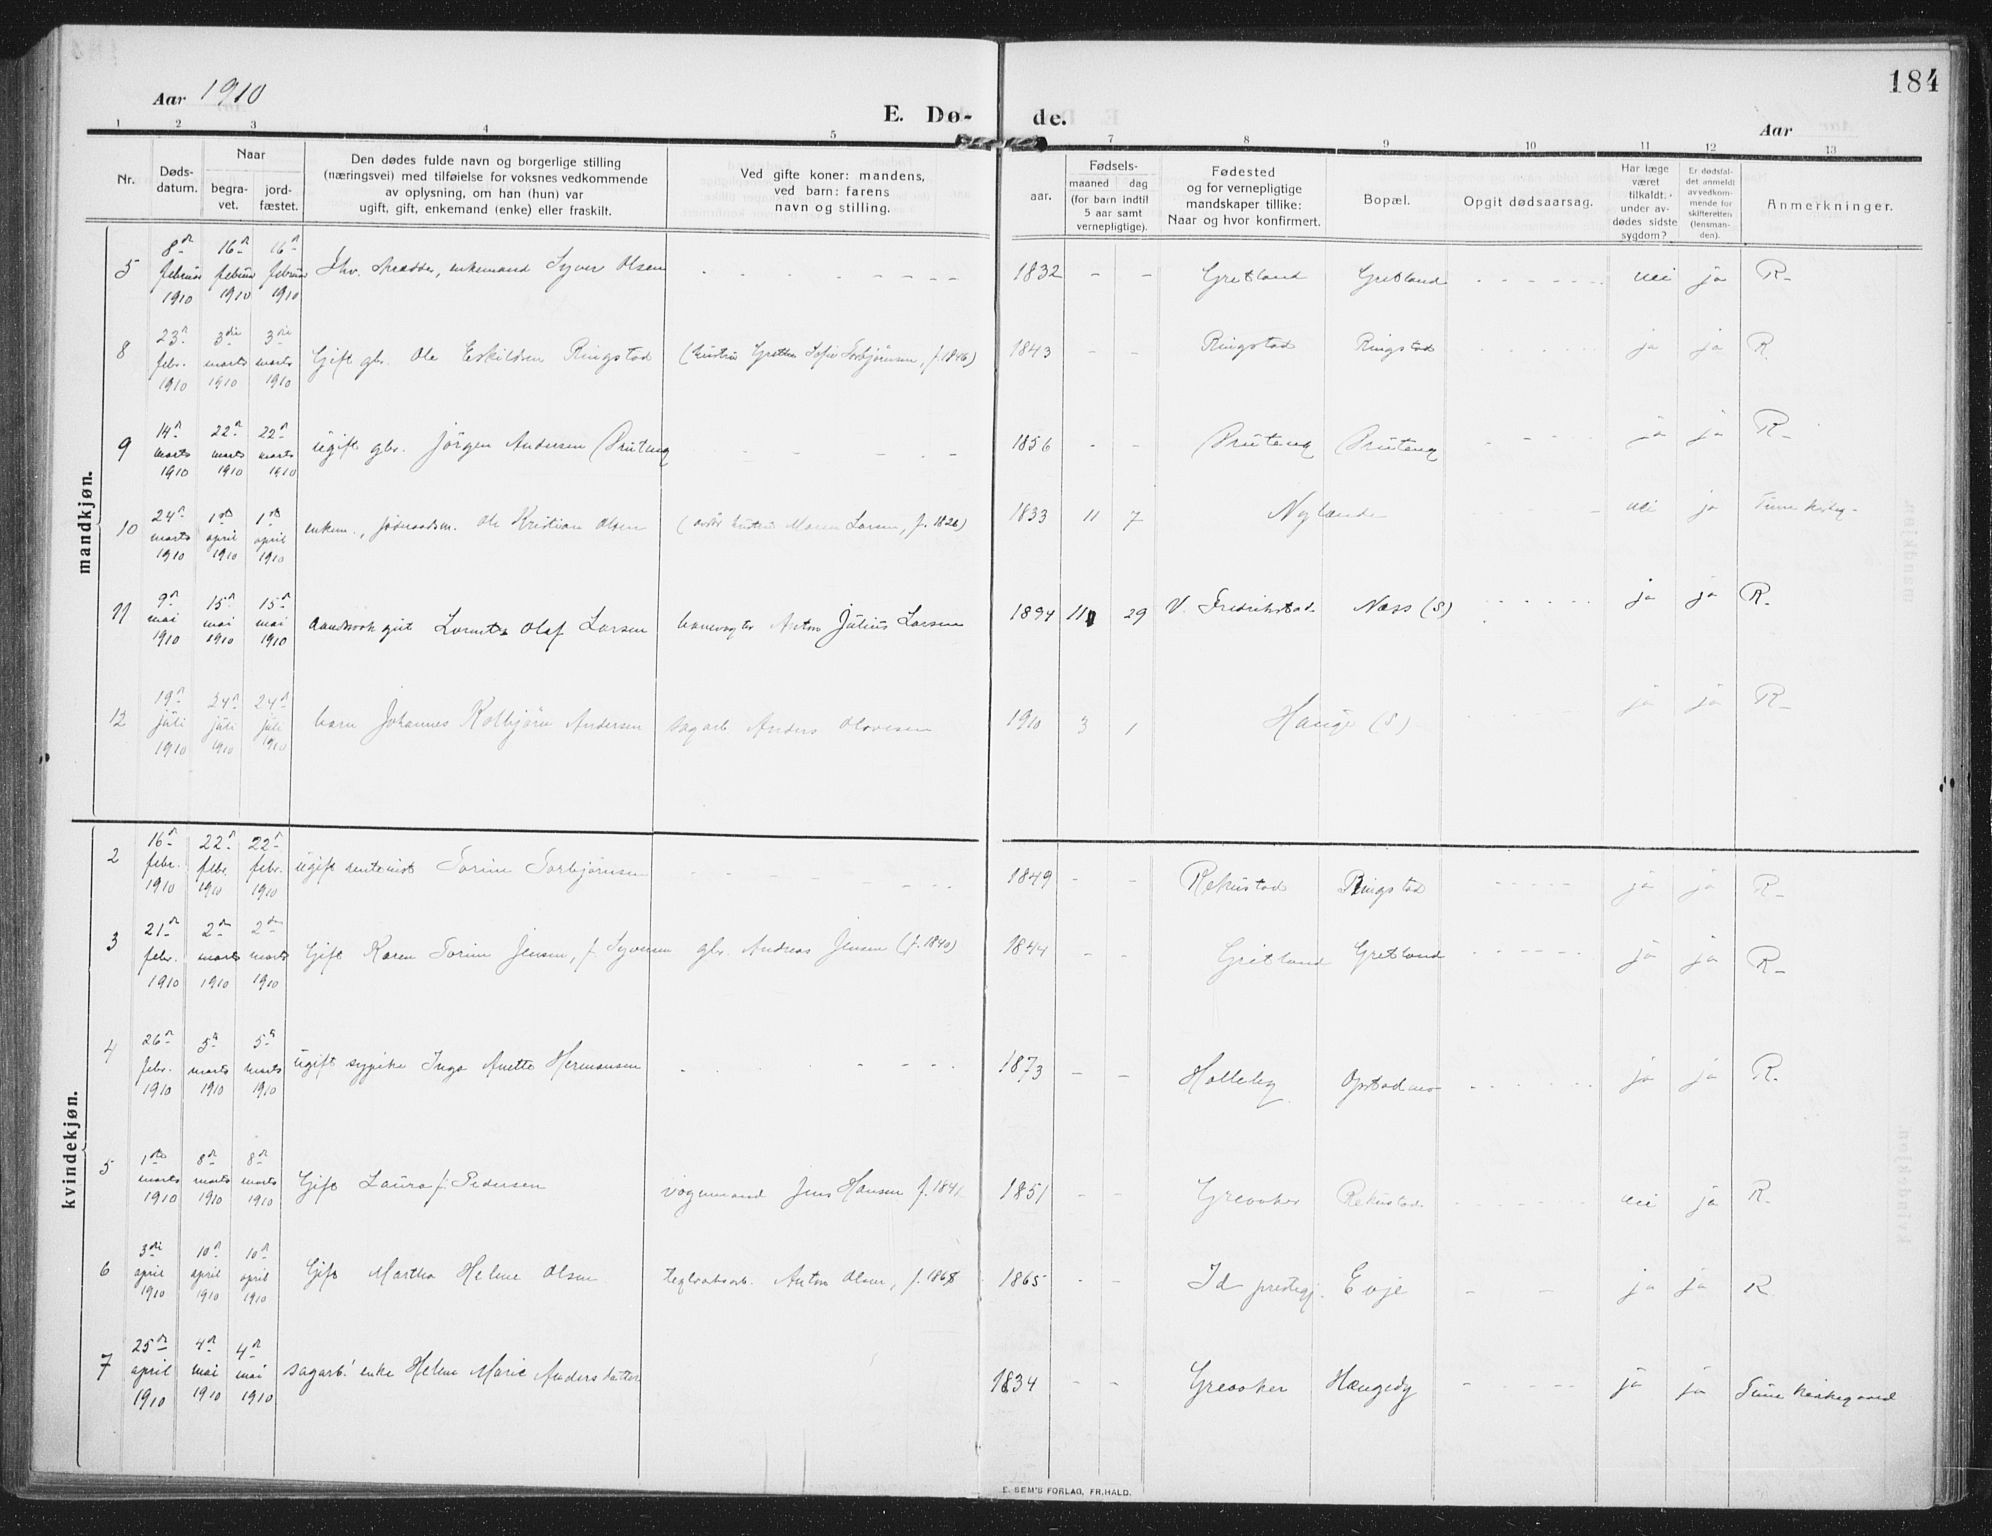 184
Aar 1910
E. Dø- de.
Aar
1 2 3 4 5 7 8 9 10 11 12 13
Nr.
Døds-
datum.
Naar
begra-
vet.
jord-
fæstet.
Den dødes fulde navn og borgerlige stilling
(næringsvei) med tilføielse for voksnes vedkommende
av oplysning, om han (hun) var
ugift, gift, enkemand (enke) eller fraskilt.
Ved gifte koner: mandens,
ved barn: farens
navn og stilling.
aar.
Fødsels-
maaned dag
(for barn indtil
5 aar samt
vernepligtige).
Fødested
og for vernepligtige
mandskaper tillike:
Naar og hvor konfirmert.
Bopæl.
Opgit dødsaarsag.
Har læge
været
tilkaldt
under av-
dødes sidste
sygdom?
Er dødsfal-
det anmeldt
av vedkom-
mende for
skifteretten
(lensman-
den).
Anmerkninger.
mandkjøn.
5 8de februar 1910 16de februar 1910 16de februar 1910 enkemand Syver Olsen - - - 1832 - - Gretland Gretland - - - nei ja R-
8 23de febr. 1910 3die marts 1910 3die marts 1910 Gift gbr. Ole Eskildsen Ringstad (hustru Grethe Sofie Torbjørnsen, f. 1846) 1843 - - Ringstad Ringstad - - - ja ja R.
9 14de marts 1910 22de marts 1910 22de marts 1910 ugift gbr. Jörgen Andersen - - - 1856 - - - - - ja ja R-
10 24de marts 1910 1ste april 1910 1ste april 1910 enkem., Ole Kristian Olsen (hustru Maren Larsen, f. 1826) 1833 11 7 Nylænde - nei ja Tune kirkeg-
11 9de mai 1910 15de mai 1910 15de mai 1910 aandssvak gut Olaf Larsen banevogter Anton Julius Larsen 1894 11 29 V. Fredrikstad Næss (S) - - - ja ja R.
12 19de juli 1910 24de juli 1910 24de juli 1910 barn Johannes Kolbjørn Andersen sagarb. Anders Olavesen 1910 3 1 Hauge (S) - - - ja ja R-
kvindekjøn.
2 16de febr. 1910 22de febr. 1910 22de febr. 1910 ugift rentenist Torine Torbjørnsen - - - 1849 - - Rekustad Ringstad - - - ja ja R-
3 21de febr. 1910 2den marts 1910 2den marts 1910 Gift Karen Torine Jensen, f. Syversen gbr. Andreas Jensen (f. 1840) 1844 - - Gretland Gretland - - - ja ja R-
4 26de febr. 1910 5te marts 1910 5te marts 1910 ugift sypike Inga Anette Hermansen - - - 1873 - - Holleby Opstadmo - - - ja ja R-
5 1ste marts 1910 8de marts 1910 8de marts 1910 Gift Laura f. Pedersen vognmand Jens Hansen f. 1841 1851 - - Greaaker Rekustad - - - nei ja R-
6 3die april 1910 10de april 1910 10de april 1910 Gift Martha Helene Olsen teglverksarb. Anton Olsen, f. 1868 1865 - - Id prestegj. Evje - - ja ja R
7 25de april 1910 4de mai 1910 4de mai 1910 sagarb. enke Helene Marie Andersdatter 1834 - - Greaaker Hængedy - - - ja ja Tune kirkegaard
E. SEM'S FORLAG, FR.HALD.